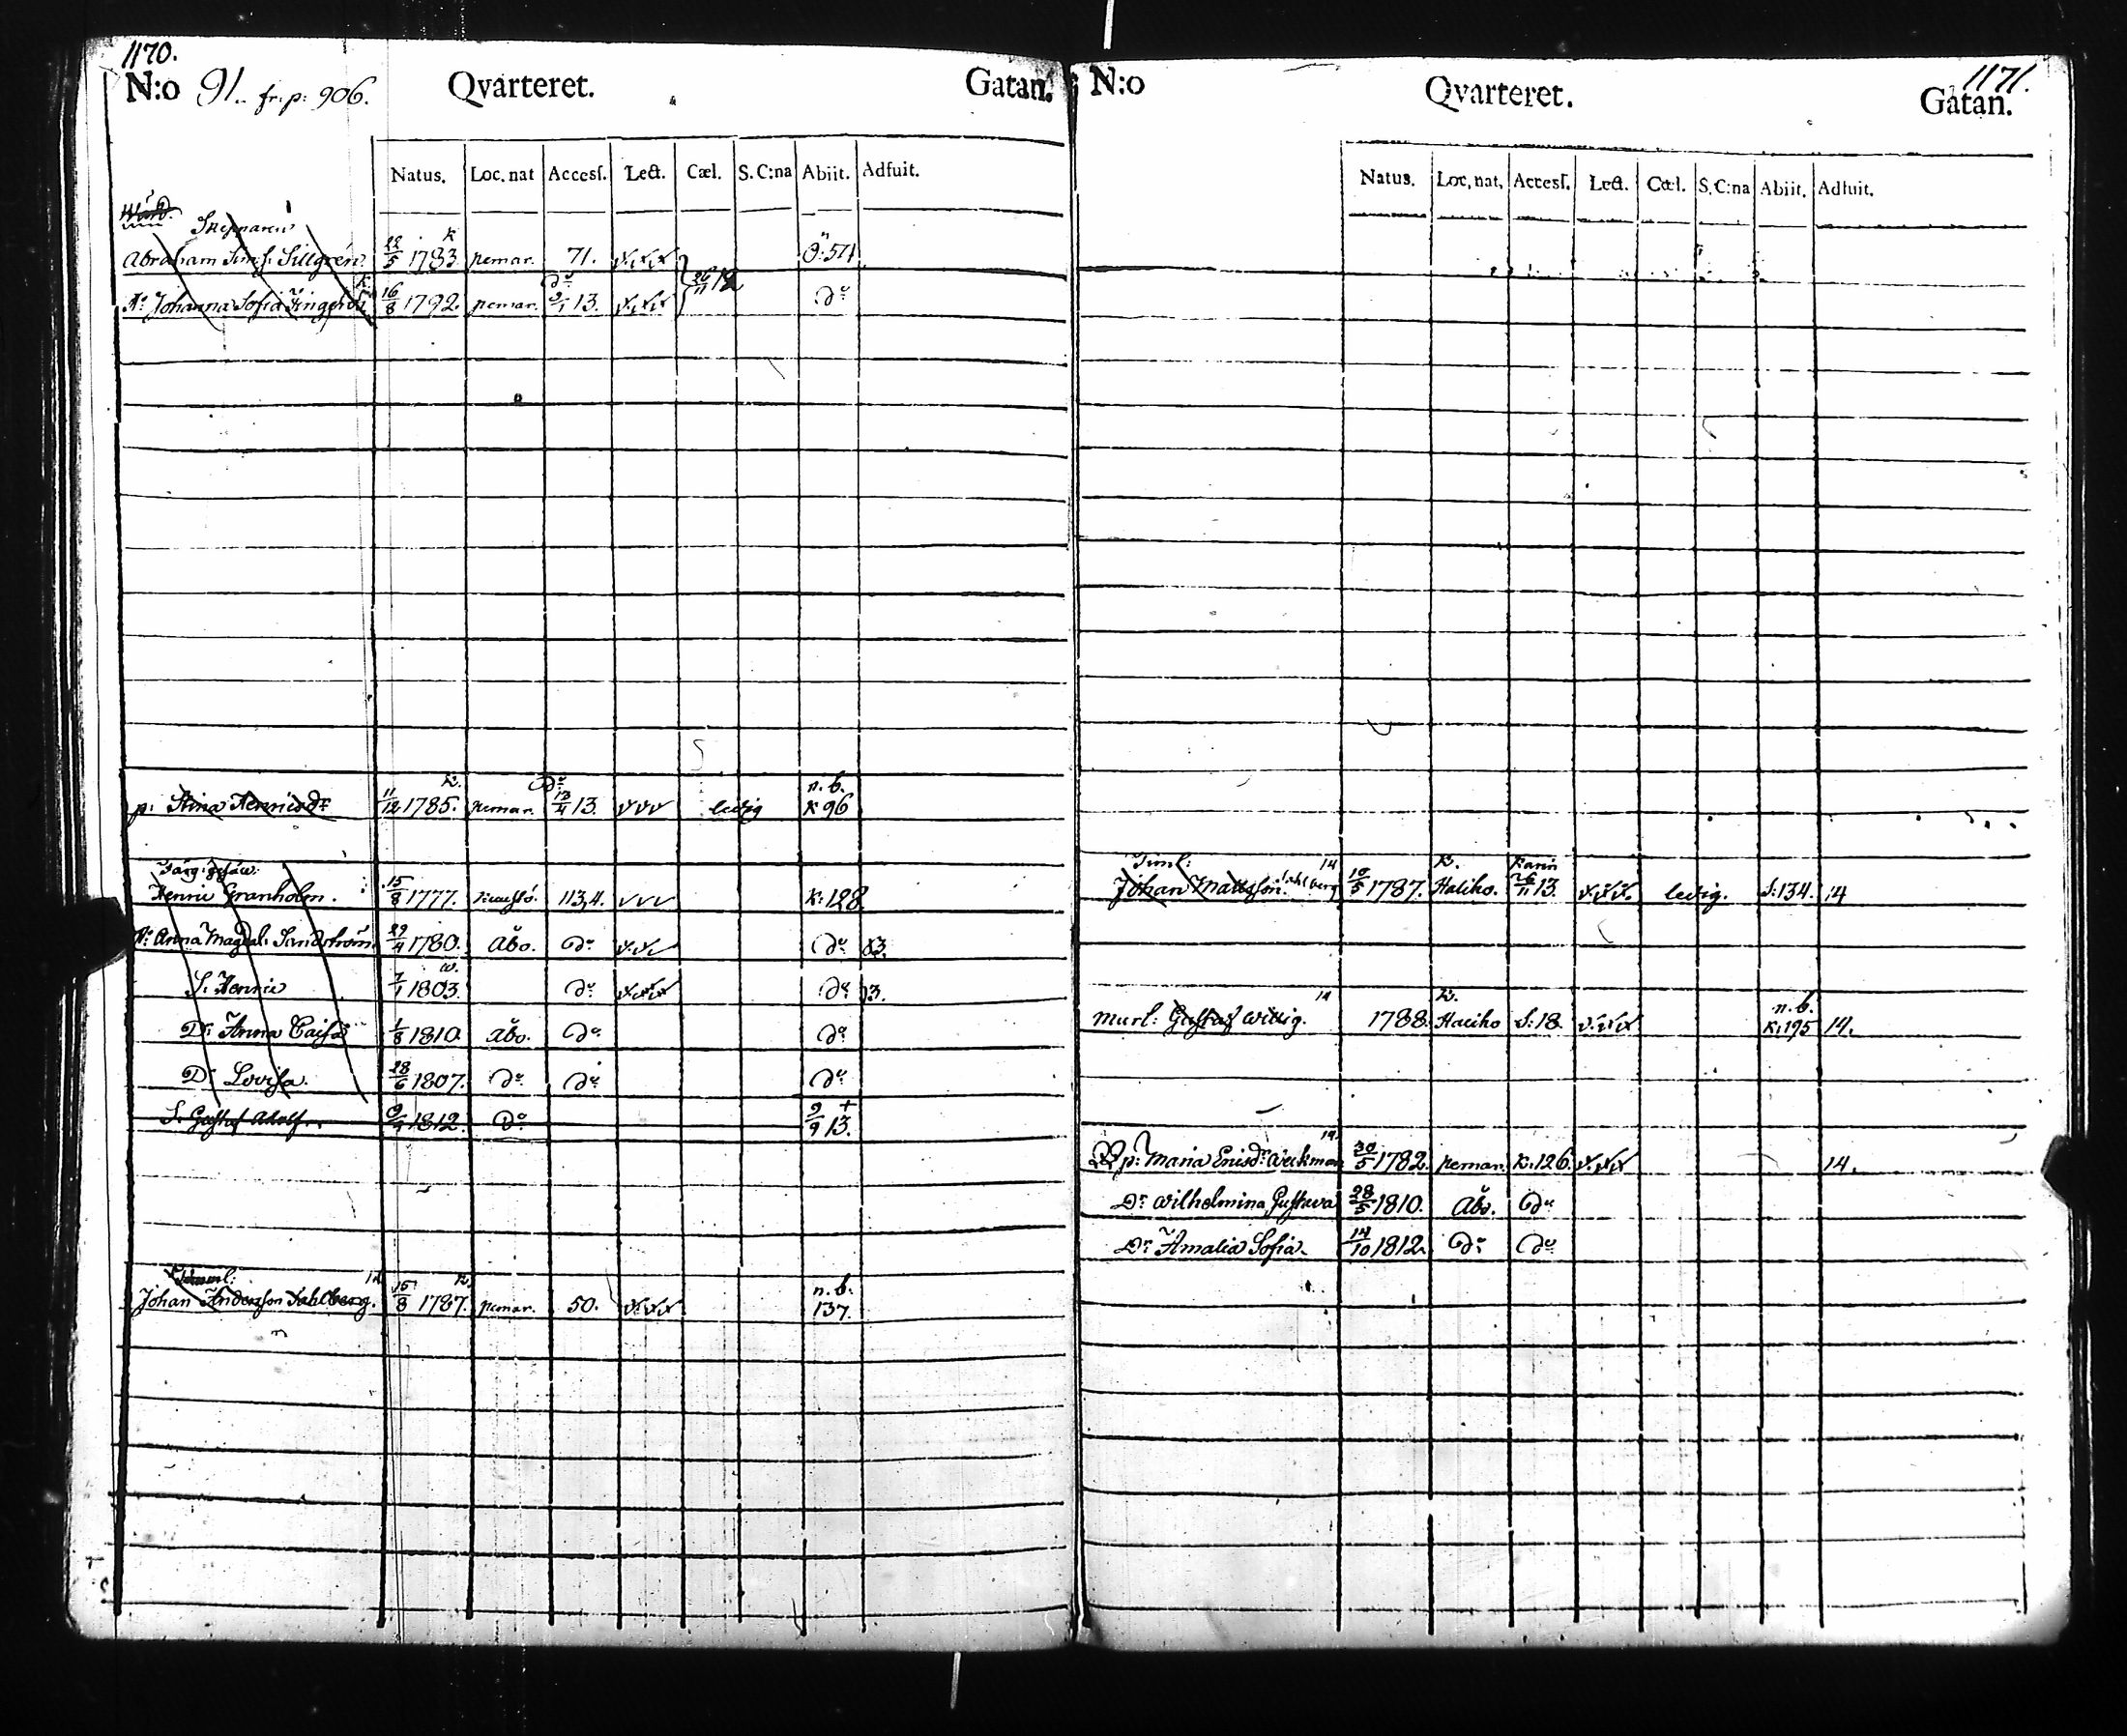 1170.
N:o 91. fr: p: 906. Qvarteret. Gatan.
Natus. Loc. nat Accesſ. Lect. Cæl. S. C:na Abiit. Adfuit.
Wärd.
Skepparen k
Abraham Simſ: Sillgrén 22/5 1783. pemar. 71. Ö: 511
k do
H: Johanna Sofia 16/8 1792. pemar. 2/1 13. do
k. do n. b.
p: Stina Henricsdr 11/12 1785. pemar. 13. ledig k 96
Färg: gesäll:
Henric Granholm. 15/8 1777. 113,4. k: 128
H: Anna Magdal: Sandström 29/4 1780. Åbo. do do 13.
S. Henric 7/1 1803. do do 13.
Dr Anna Caisa 1/8 1810. Åbo. do do
Dr Lovisa. 28/6 1807. do do do
S. Gustaf Adolf. 1812. do 9/9 13. +
Timml: 14 k n. b.
Johan Andersson Sahlberg. 15/8 1787. pemar. 50. 137.
1171.
N:o Qvarteret. Gatan.
Natus. Loc. nat. Accesſ. Lect. Cæl. S. C:na Abiit. Adfuit.
Timl: 14 k. Karin
Johan Mattsson Sahlberg 10/5 1787. Haliko. 26/11 13. ledig. S: 134. 14
14 k. n. b.
Murl: Gustaf Wittig. 1788. Haliko S: 18. K: 195 14.
14.
p: Maria Ericsdr Weckman 30/5 1782. pemar. k: 126. 14.
Dr Wilhelmina Gustava 28/5 1810. Åbo. do
Dr Amalia Sofia 14/10 1812. do do